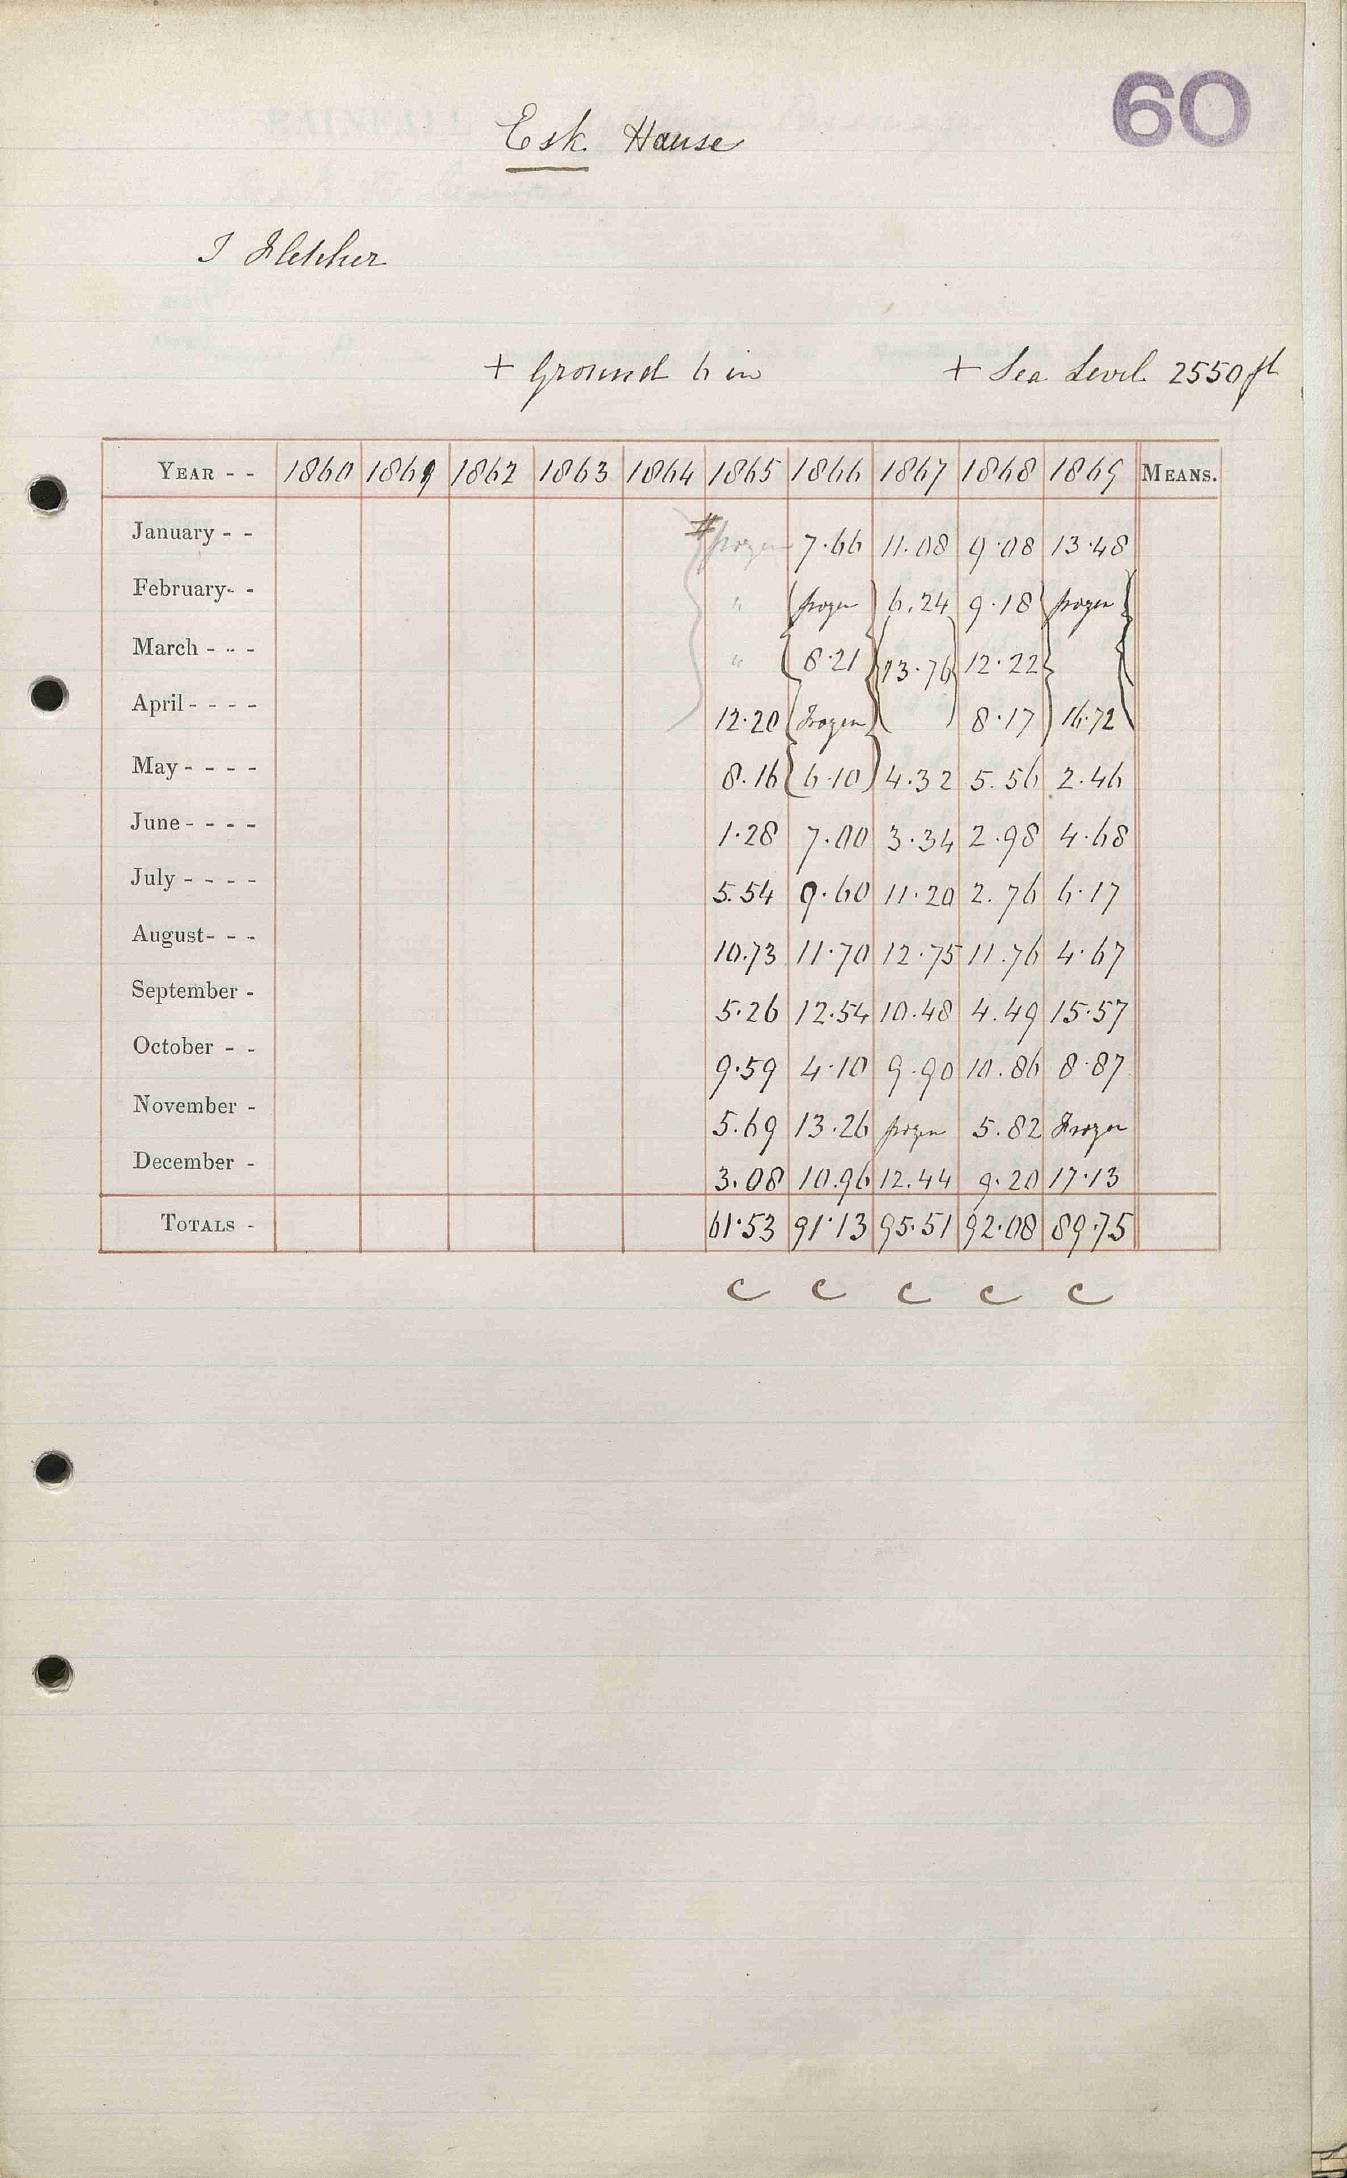 60
Esk Hause
I Fletcher
+ Ground 6 in + Sea Level 2550 ft
YEAR - - 1860 1861 1862 1863 1864 1865 1866 1867 1868 1869 MEANS.
January - - # frozen 7.66 11.08 9.08 13.48
February- - " frozen 6.24 9.18 frozen
March - - - " 8.21 13.76 12.22
April - - - - 12.20 Frozen 8.17 16.72
May - - - - 8.16 6.10 4.32 5.56 2.46
June - - - - 1.28 7.00 3.34 2.98 4.68
July - - - - 5.54 9.60 11.20 2.76 6.17
August- - - 10.73 11.70 12.75 11.76 4.67
September - 5.26 12.54 10.48 4.49 15.57
October - - 9.59 4.10 9.90 10.86 8.87
November - 5.69 13.26 frozen 5.82 Frozen
December - 3.08 10.96 12.44 9.20 17.13
TOTALS - 61.53 91.13 95.51 92.08 89.75
C C C C C